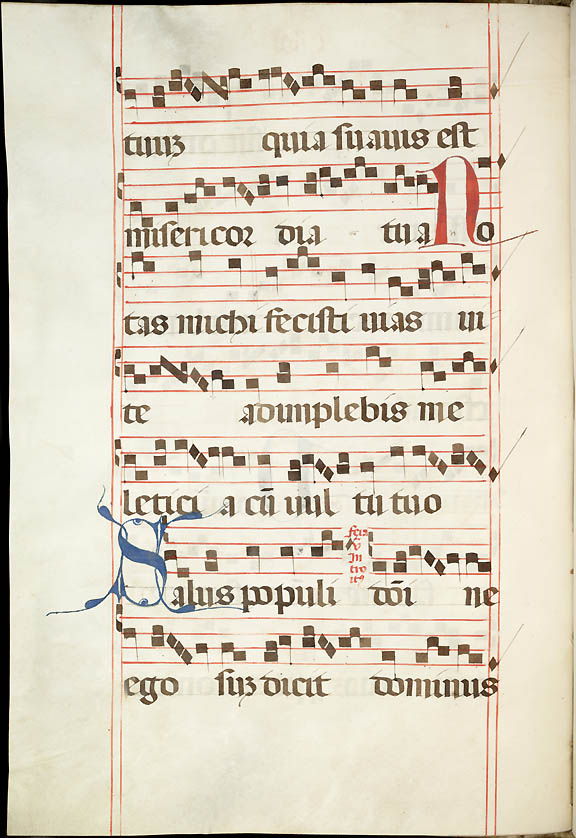 tuuz quia suauis est
misericor dia tu a No
tas michi fecisti uias ui
te adimplebis me
letici a cū uul tu tuo
feria v Introitus
Salus populi dōi ne
ego suz dicit dominus